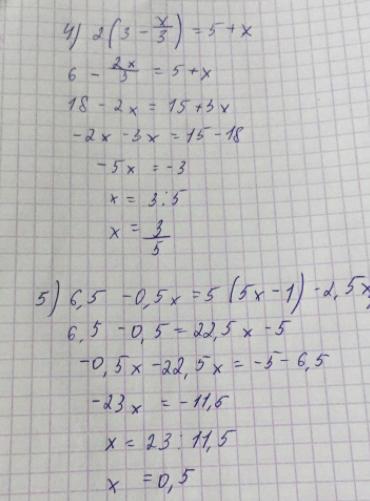 4) 2(3 - x/3) = 5 + x
6 - 2x/3 = 5 + x
18 - 2x = 15 + 3x
-2x - 3x = 15 - 18
-5x = -3
x = 3 : 5
x = 3/5
5) 6,5 - 0,5x = 5(5x - 1) - 2,5x
6,5 - 0,5 = 22,5x - 5
-0,5x - 22,5x = -5 - 6,5
-23x = -11,5
x = 23 : 11,5
x = 0,5